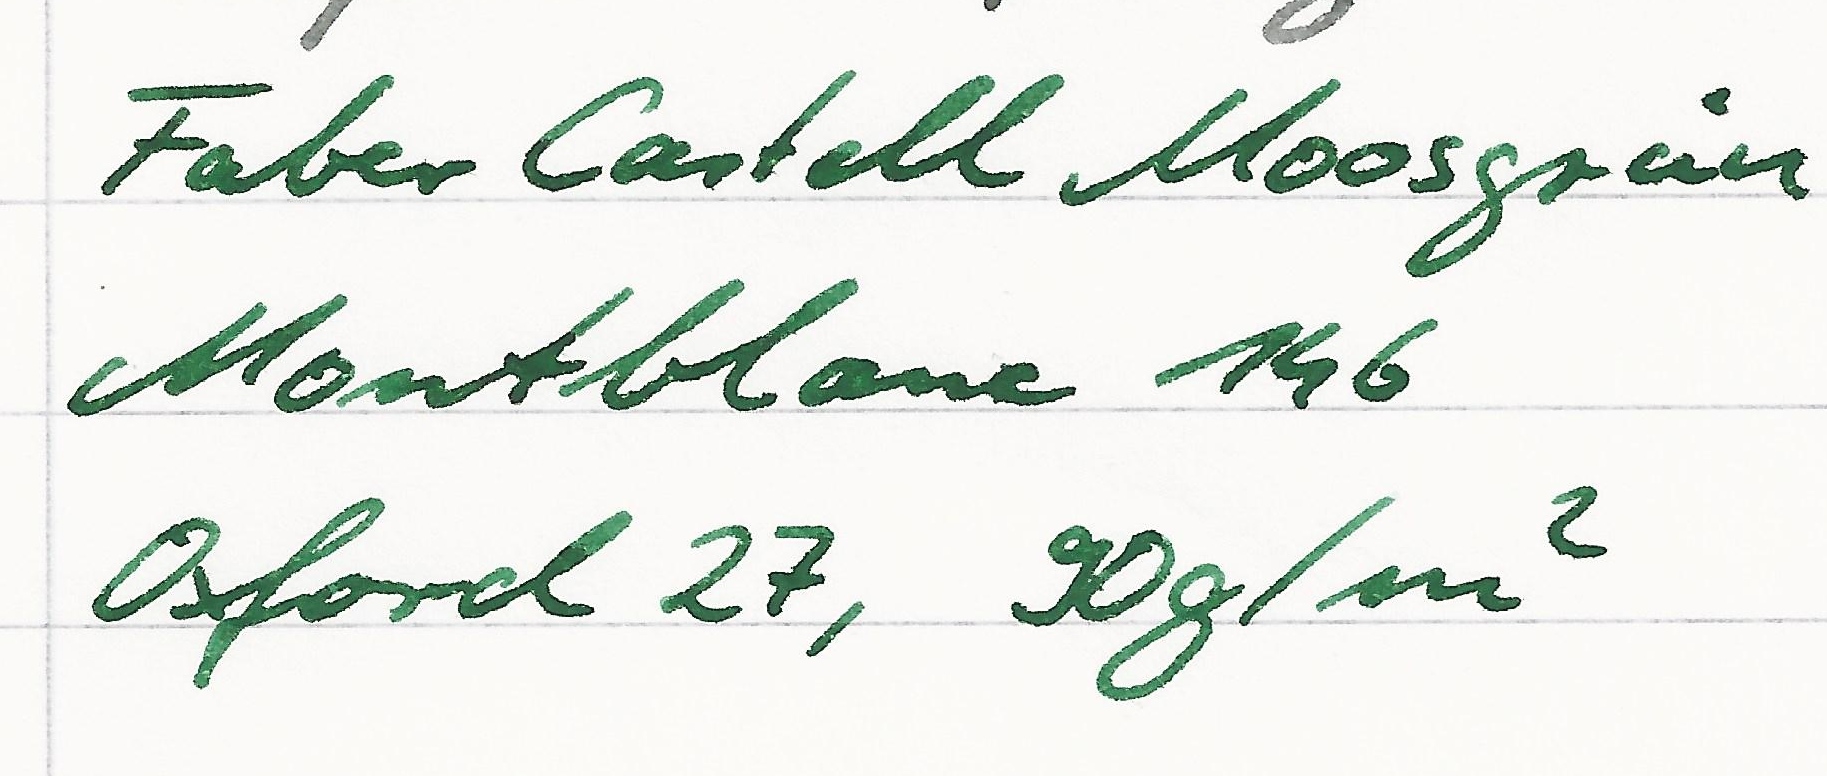 Faber Castell Moosgrün
Montblanc 146
Oxford 27, 90g/m²